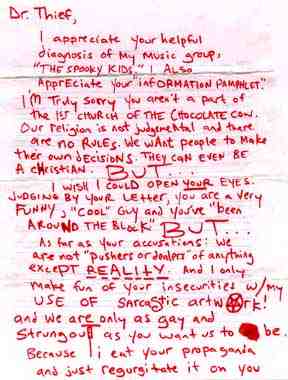 Dr. Thief,
I appreciate your helpful
diagnosis of My Music group,
"THE SPOOKY KIDS". I Also
AppreCiate Your "inFORMATION PAMPHLET."
I'M Truly Sorry you aren't a part of
the 1ST CHURCH OF THE CHOCOLATE COW.
Our religion is not judgmental and there
are no RULEs. We wANT people to Make
their own DecisiONS. THEY CAN EVEN BE
A CHRiSTiAN. BUT...
I WISH I COULD OPEN YOUR EYES.
JUDGING BY YOUR LETTER, you are a VEry
FUNNY, "COOL" GUY and You've "been
AROUND THE BLOCK" BUT...
As far as your accusations: we
are not "pushers or dealers" of anything
excePT REALITY. And I only
Make fun of your insecurities w/my
USE OF SarcaStic artwOrk!
and we are only as gay and
Strungout as you want us to be.
Because I eat your propaganda
and just regurgitate it on you